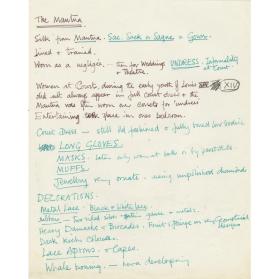 The Mantua
Silk from Mantua. Sac. Sack or Sagne or Gown.
Lined & trained.
Worn as a negligée. — then for Weddings UNDRESS. Informality
& Theatre. at Court.
Women at Court, during the early youth of Louis XIV
did not always appear in full court dress & the
Mantua was then worn over corsets for 'undress'
Entertaining take place in ones bedroom.
Court Dress — still old fashioned & fully boned low bodice
LONG GLOVES
MASKS. later only worn at balls or by prostitutes.
MUFFS
Jewellery very ornate. using unpolished diamonds
DECORATIONS.
Metal Lace. Black & White lace.
Ribbon — Two sided satin gauze & metal.
Heavy Damasks & Brocades. Fruit & foliage on very Geometrical
designs
Dark Rich Colours.
Lace Aprons. & Capes.
Whale boning — now developing